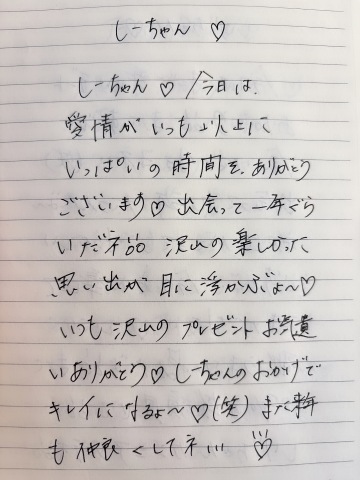 しーちゃん ♡
しーちゃん ♡ 今日は、
愛情がいつも以上に
いっぱいの時間を、ありがとう
ございます♡ 出会って一年ぐら
いだネ 沢山の楽しかった
思い出が目に浮かぶよ〜♡
いつも沢山のプレゼントお気遣
いありがとう♡ しーちゃんのおかげで
キレイになるよ〜♡(笑) また来年
も仲良くしてネ!!! ♡